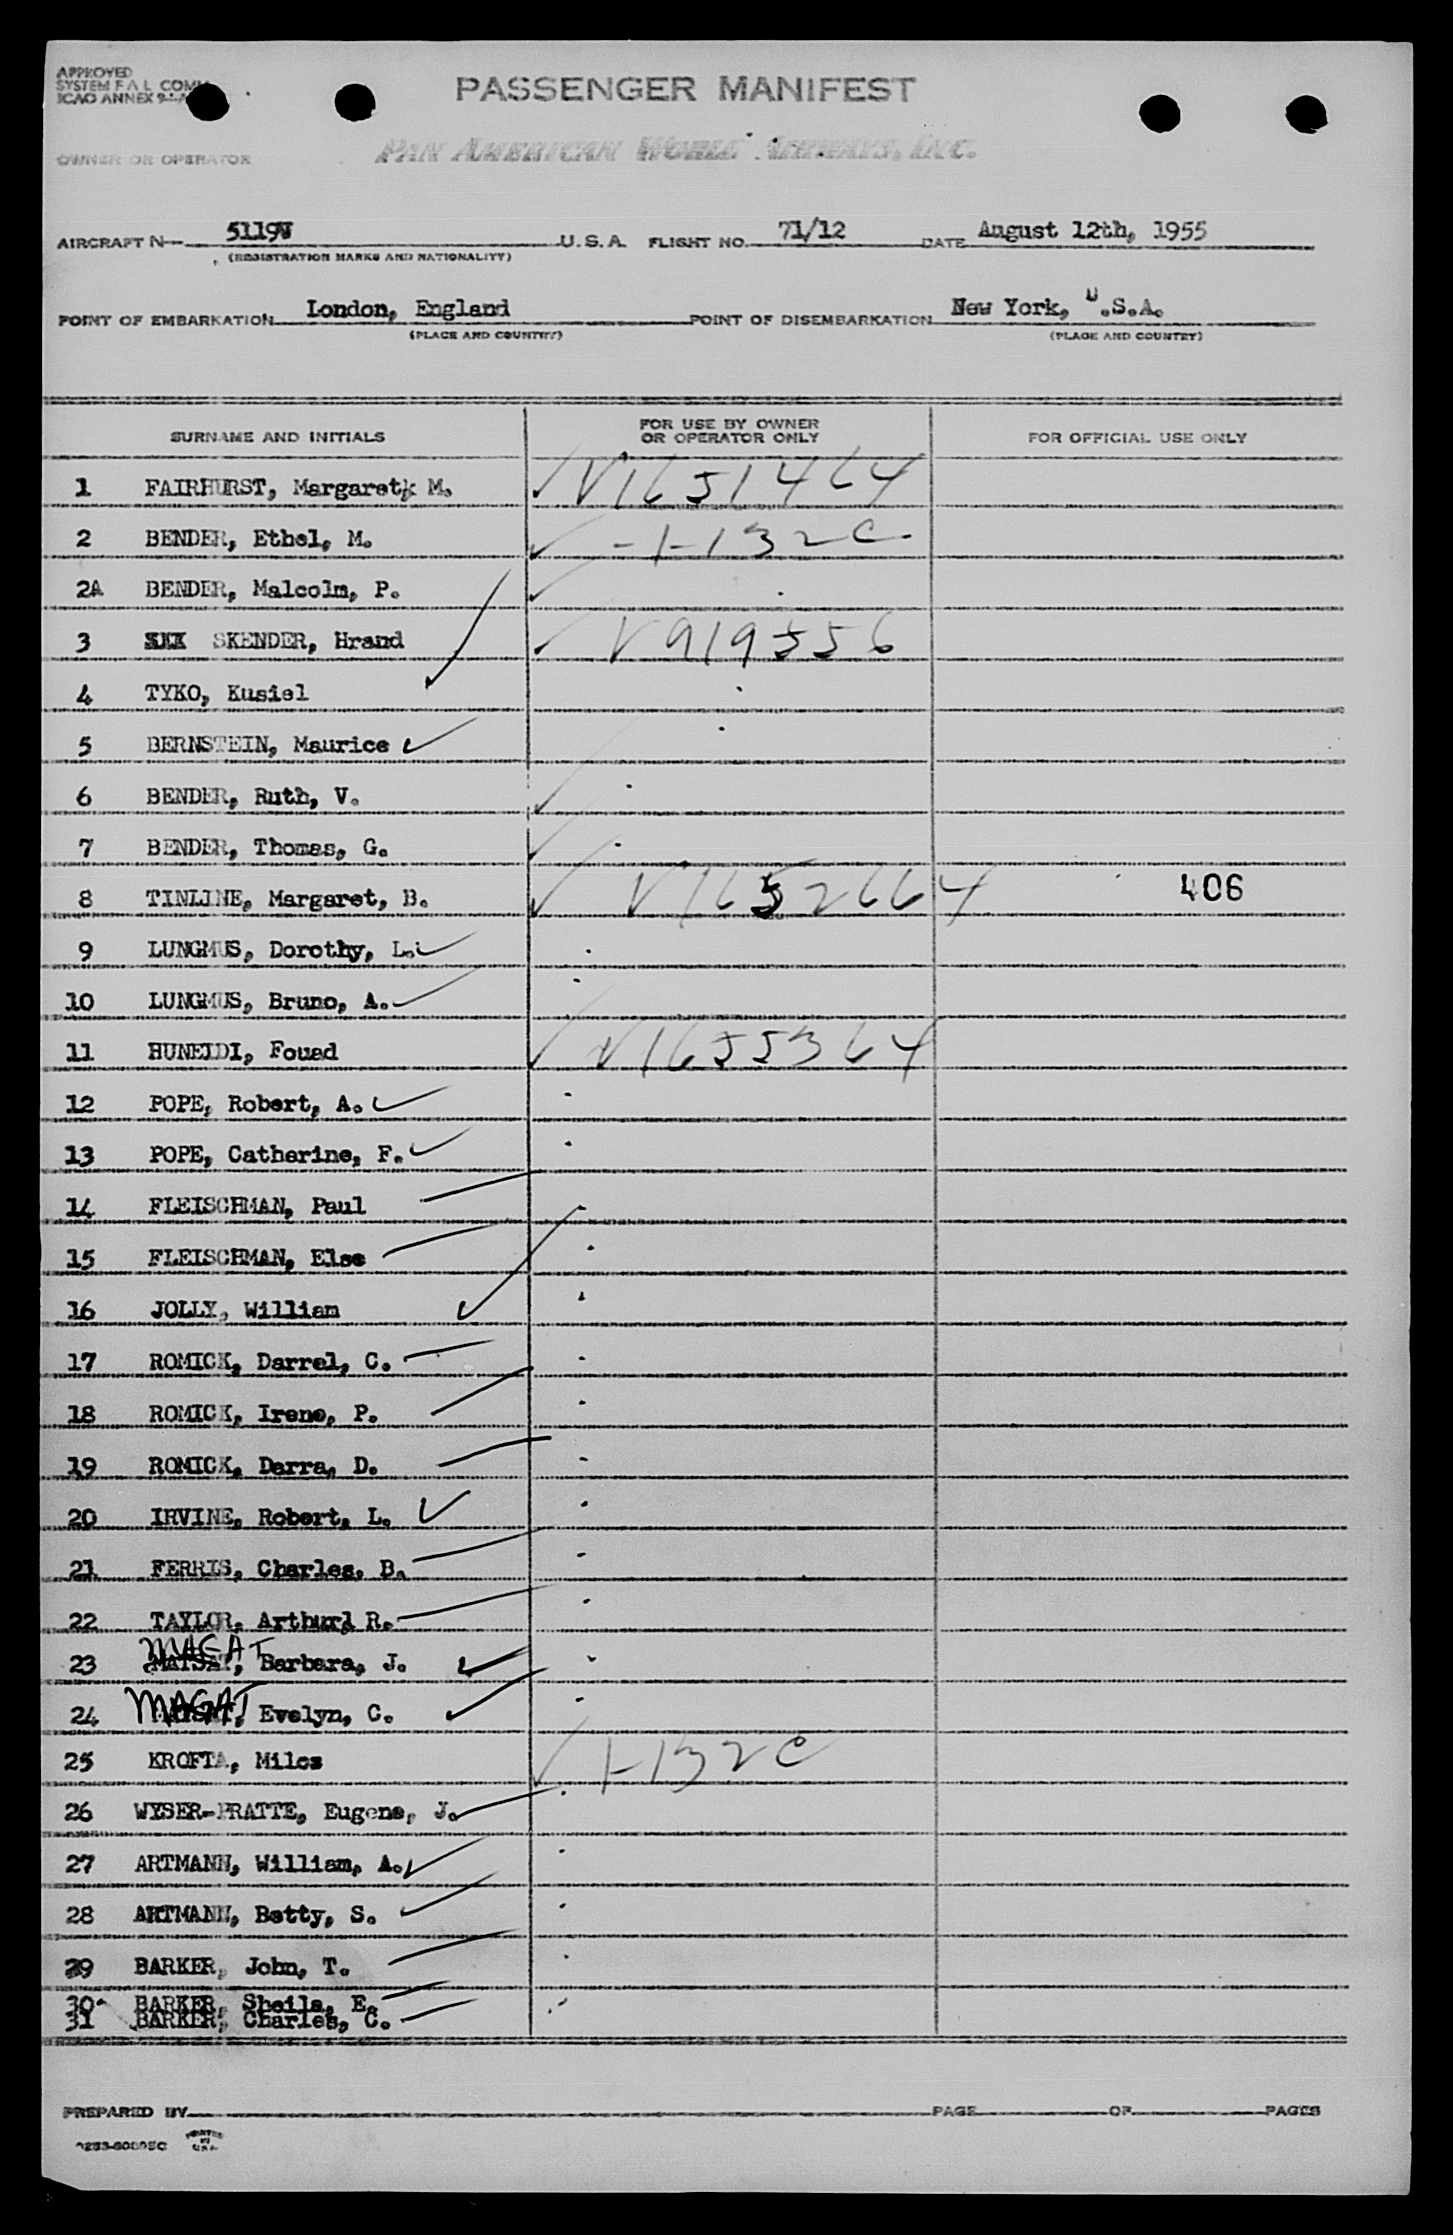 APPROVED
SYSTEM F A L COMM
ICAO ANNEX 9-A
PASSENGER MANIFEST
OWNER OR OPERATOR PAN AMERICAN WORLD AIRWAYS, INC.
AIRCRAFT N- 5119V U.S.A. FLIGHT NO. 71/12 DATE August 12th, 1955
(REGISTRATION MARKS AND NATIONALITY)
POINT OF EMBARKATION London, England POINT OF DISEMBARKATION New York, U.S.A.
(PLACE AND COUNTRY) (PLACE AND COUNTRY)
SURNAME AND INITIALS FOR USE BY OWNER OR OPERATOR ONLY FOR OFFICIAL USE ONLY
1 FAIRHURST, Margaret M. V1651464
2 BENDER, Ethel, M. -1-132C-
2A BENDER, Malcolm, P.
3 SKENDER, Hrand V919556
4 TYKO, Kusiel
5 BERNSTEIN, Maurice
6 BENDER, Ruth, V.
7 BENDER, Thomas, G.
8 TINLINE, Margaret, B. V1652664 406
9 LUNGMUS, Dorothy, L.
10 LUNGMUS, Bruno, A.
11 HUNEIDI, Fouad V1655364
12 POPE, Robert, A.
13 POPE, Catherine, F.
14 FLEISCHMAN, Paul
15 FLEISCHMAN, Else
16 JOLLY, William
17 ROMICK, Darrel, C.
18 ROMICK, Irene, P.
19 ROMICK, Darra, D.
20 IRVINE, Robert, L.
21 FERRIS, Charles, B.
22 TAYLOR, Arthur R.
23 MAGAT, Barbara, J.
24 MAGAT, Evelyn, C.
25 KROFTA, Milos 1-132C
26 WYSER-PRATTE, Eugene, J.
27 ARTMANN, William, A.
28 ARTMANN, Betty, S.
29 BARKER, John, T.
30 BARKER, Sheila, E.
31 BARKER, Charles, C.
PREPARED BY PAGE OF PAGES
PRINTED
IN
U.S.A.